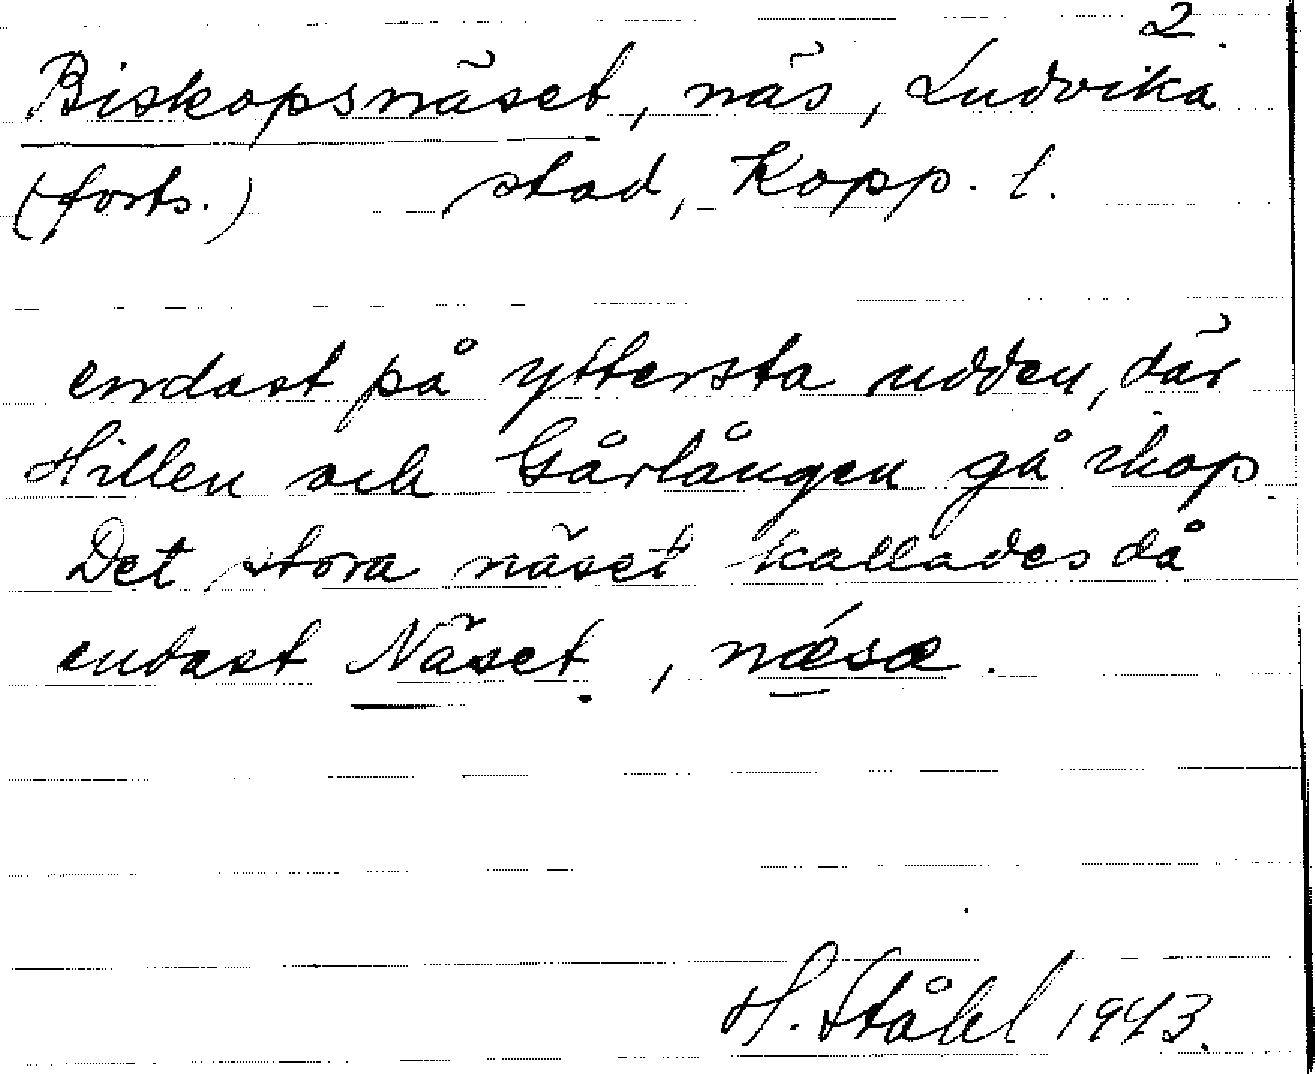 2.
Biskopsnäset, näs, Ludvika
(forts.) stad, Kopp. l.
endast på yttersta udden, där
Hillen och Gårlången gå ihop.
Det stora näset kallades då
endast Näset, nǽsæ.
H. Ståhl 1943.